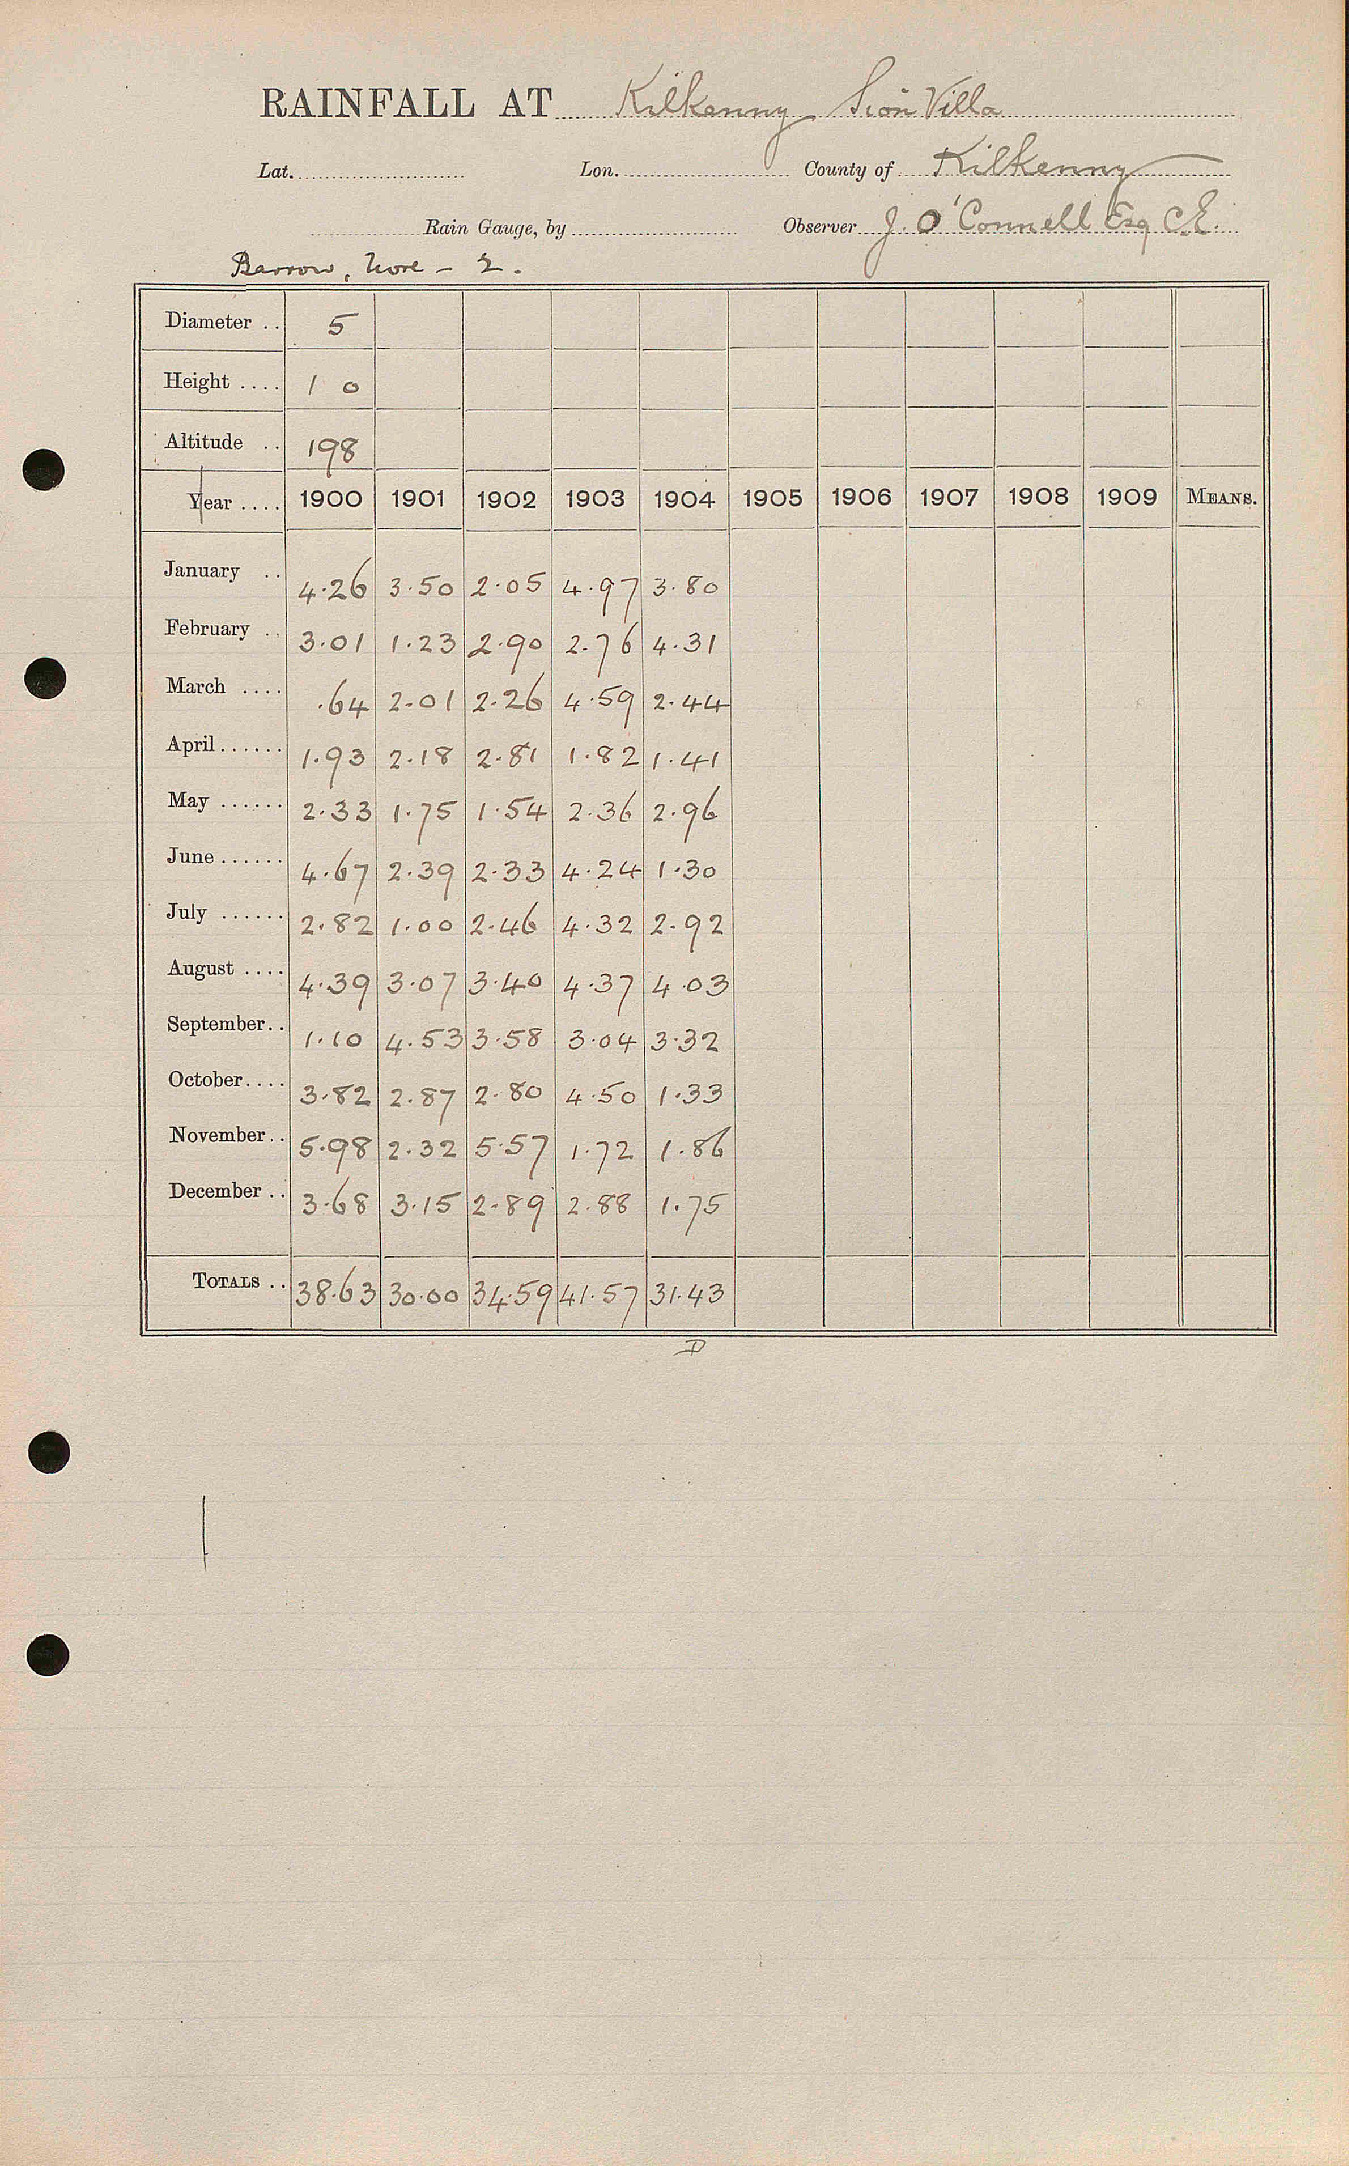 RAINFALL AT Kilkenny Sion Villa
Lat. Lon. County of Kilkenny
Rain Gauge, by Observer J. O'Connell Esq C.E.
Barrow, Nore - 2.
Diameter .. 5
Height .... 1 0
Altitude .. 198
Year .... 1900 1901 1902 1903 1904 1905 1906 1907 1908 1909 MEANS.
January .. 4.26 3.50 2.05 4.97 3.80
February .. 3.01 1.23 2.90 2.76 4.31
March .... .64 2.01 2.26 4.59 2.44
April ...... 1.93 2.18 2.81 1.82 1.41
May ...... 2.33 1.75 1.54 2.36 2.96
June ...... 4.67 2.39 2.33 4.24 1.30
July ...... 2.82 1.00 2.46 4.32 2.92
August .... 4.39 3.07 3.40 4.37 4.03
September.. 1.10 4.53 3.58 3.04 3.32
October.... 3.82 2.87 2.80 4.50 1.33
November.. 5.98 2.32 5.57 1.72 1.86
December .. 3.68 3.15 2.89 2.88 1.75
TOTALS .. 38.63 30.00 34.59 41.57 31.43
D